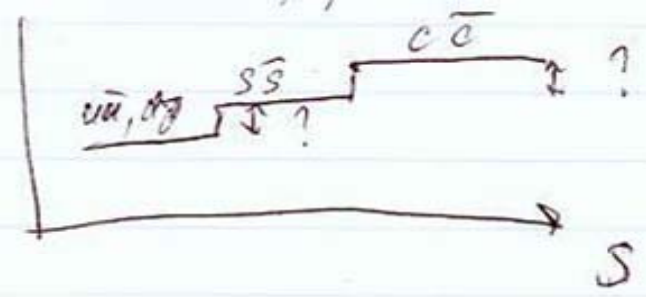 c c̄
s s̄
?
uū, dd̄
?
S